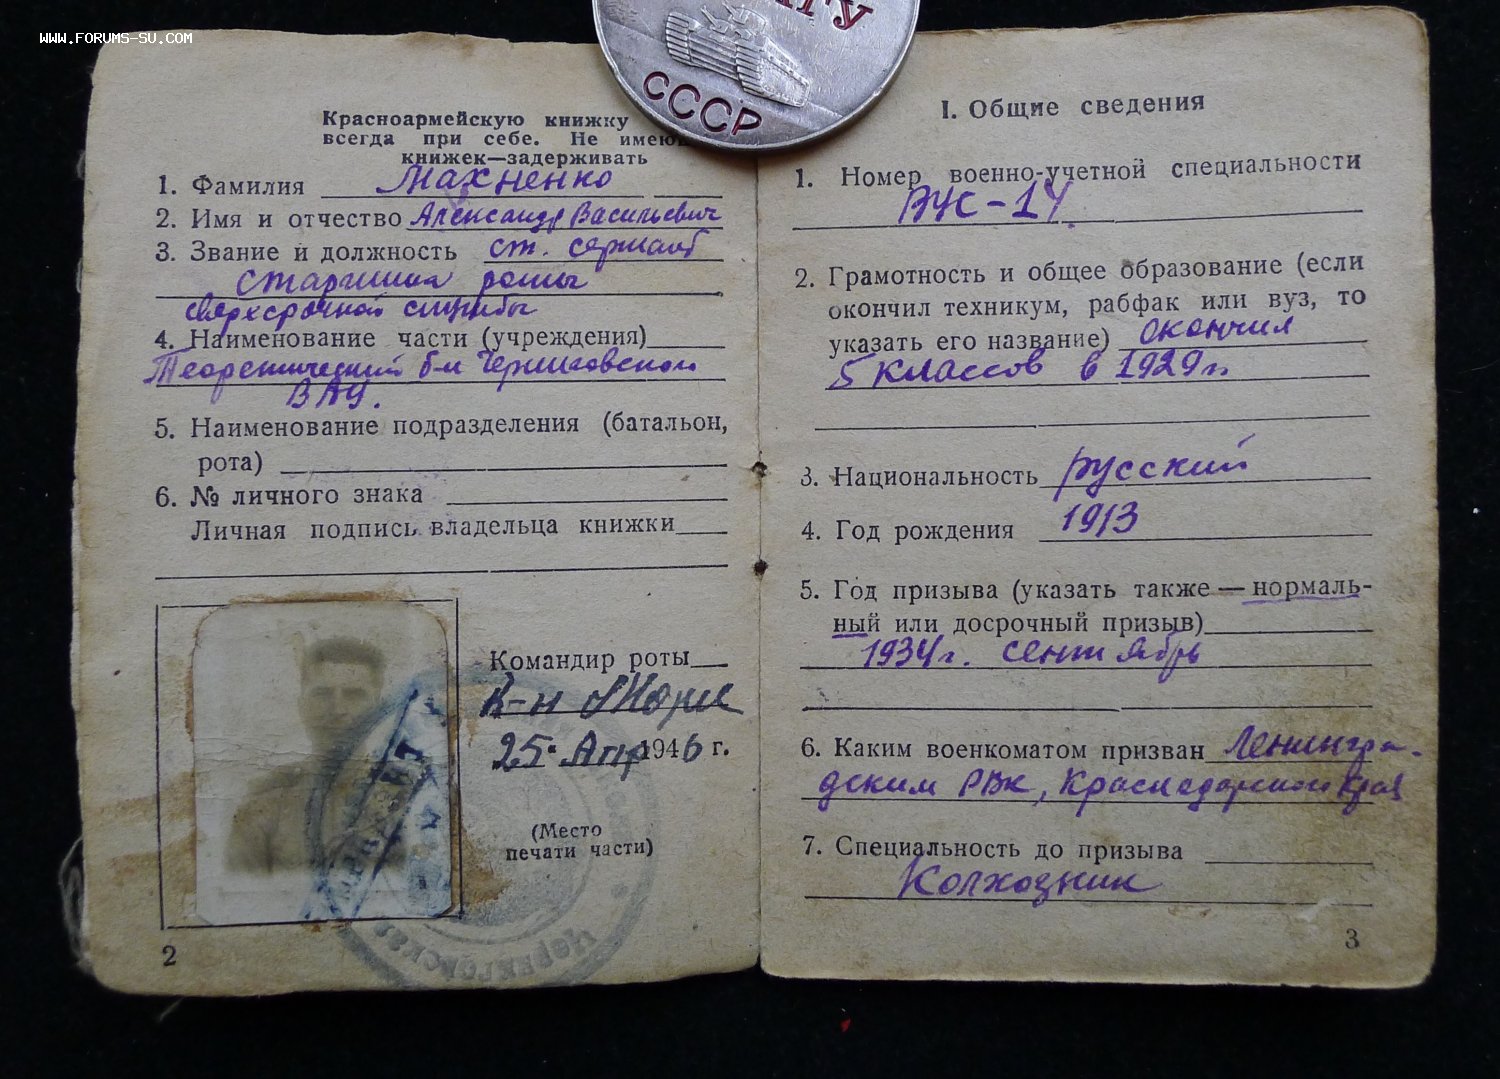 WWW.FORUMS-SU.COM
СССР
Красноармейскую книжку
всегда при себе. Не имею
книжек—задерживать
1. Фамилия Махненко
2. Имя и отчество Александр Васильевич
3. Звание и должность ст. сержант
старшина роты
сверхсрочной службы
4. Наименование части (учреждения)
Теоретический б-н Черниговской
ВАУ.
5. Наименование подразделения (батальон,
рота)
6. № личного знака
Личная подпись владельца книжки
Командир роты
К-н
25. Апр 1946 г.
(Место
печати части)
2
I. Общие сведения
1. Номер военно-учетной специальности
ВУС-14
2. Грамотность и общее образование (если
окончил техникум, рабфак или вуз, то
указать его название) окончил
5 классов в 1929 г.
3. Национальность русский
4. Год рождения 1913
5. Год призыва (указать также — нормаль-
ный или досрочный призыв)
1934 г. сентябрь
6. Каким военкоматом призван Ленингра-
дским РВК, Краснодарского края
7. Специальность до призыва
Колхозник
3